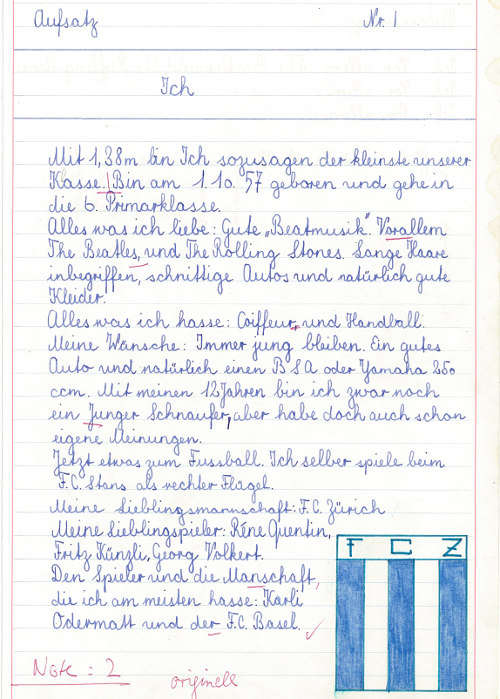 Aufsatz Nr. 1
Ich
Mit 1,38m bin Ich sozusagen der kleinste unserer
Kasse. Bin am 1.10.57 geboren und gehe in
die 6. Primarklasse.
Alles was ich liebe: Gute „Beatmusik". Vorallem
The Beatles, und The Rolling Stones. Lange Haare
inbegriffen, schnittige Autos und natürlich gute
Kleider.
Alles was ich hasse: Coiffeur, und Handball.
Meine Wünsche: Immer jung bleiben. Ein gutes
Auto und natürlich einen BSA oder Yamaha 250
ccm. Mit meinen 12 Jahren bin ich zwar noch
ein Junger Schnaufer, aber habe doch auch schon
eigene Meinungen.
Jetzt etwas zum Fussball. Ich selber spiele beim
F.C. Stans als rechter Flügel.
Meine Lieblingsmannschaft: F.C. Zürich
Meine Lieblingspieler: Réne Quentin,
Fritz Künzli, Georg Volkert.
Den Spieler und die Manschaft,
die ich am meisten hasse: Karli
Odermatt und der F.C. Basel.
F C Z
Note: 2 originell